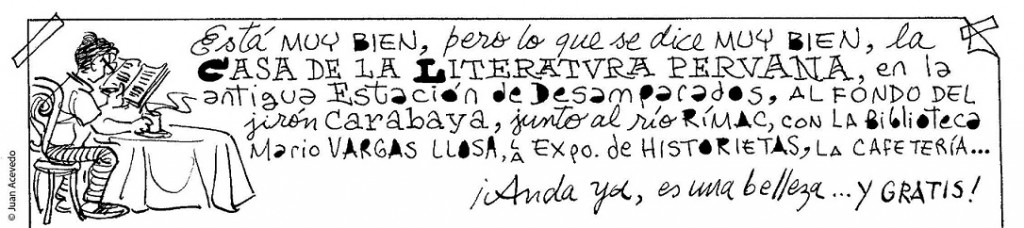 Está MUY BIEN, pero lo que se dice MUY BIEN, la
CASA DE LA LITERATVRA PERVANA, en la
antigua Estación de Desamparados, AL FONDO DEL
jirón Carabaya, junto al río RÍMAC, CON LA Biblioteca
Mario VARGAS LLOSA, LA EXPO. de HISTORIETAS, LA CAFETERÍA...
¡Anda ya, es una belleza... Y GRATIS!
© Juan Acevedo